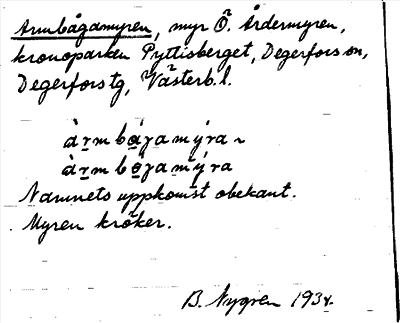 Armbågamyren, myr Ö. Årdermyren,
kronoparken Pyttisberget, Degerfors sn,
Degerfors tg, Västerb. l.
àrmbåg̣amýra ~
àrmbögamýra
Namnets uppkomst obekant.
Myren kröker.
B. Nygren 1934.